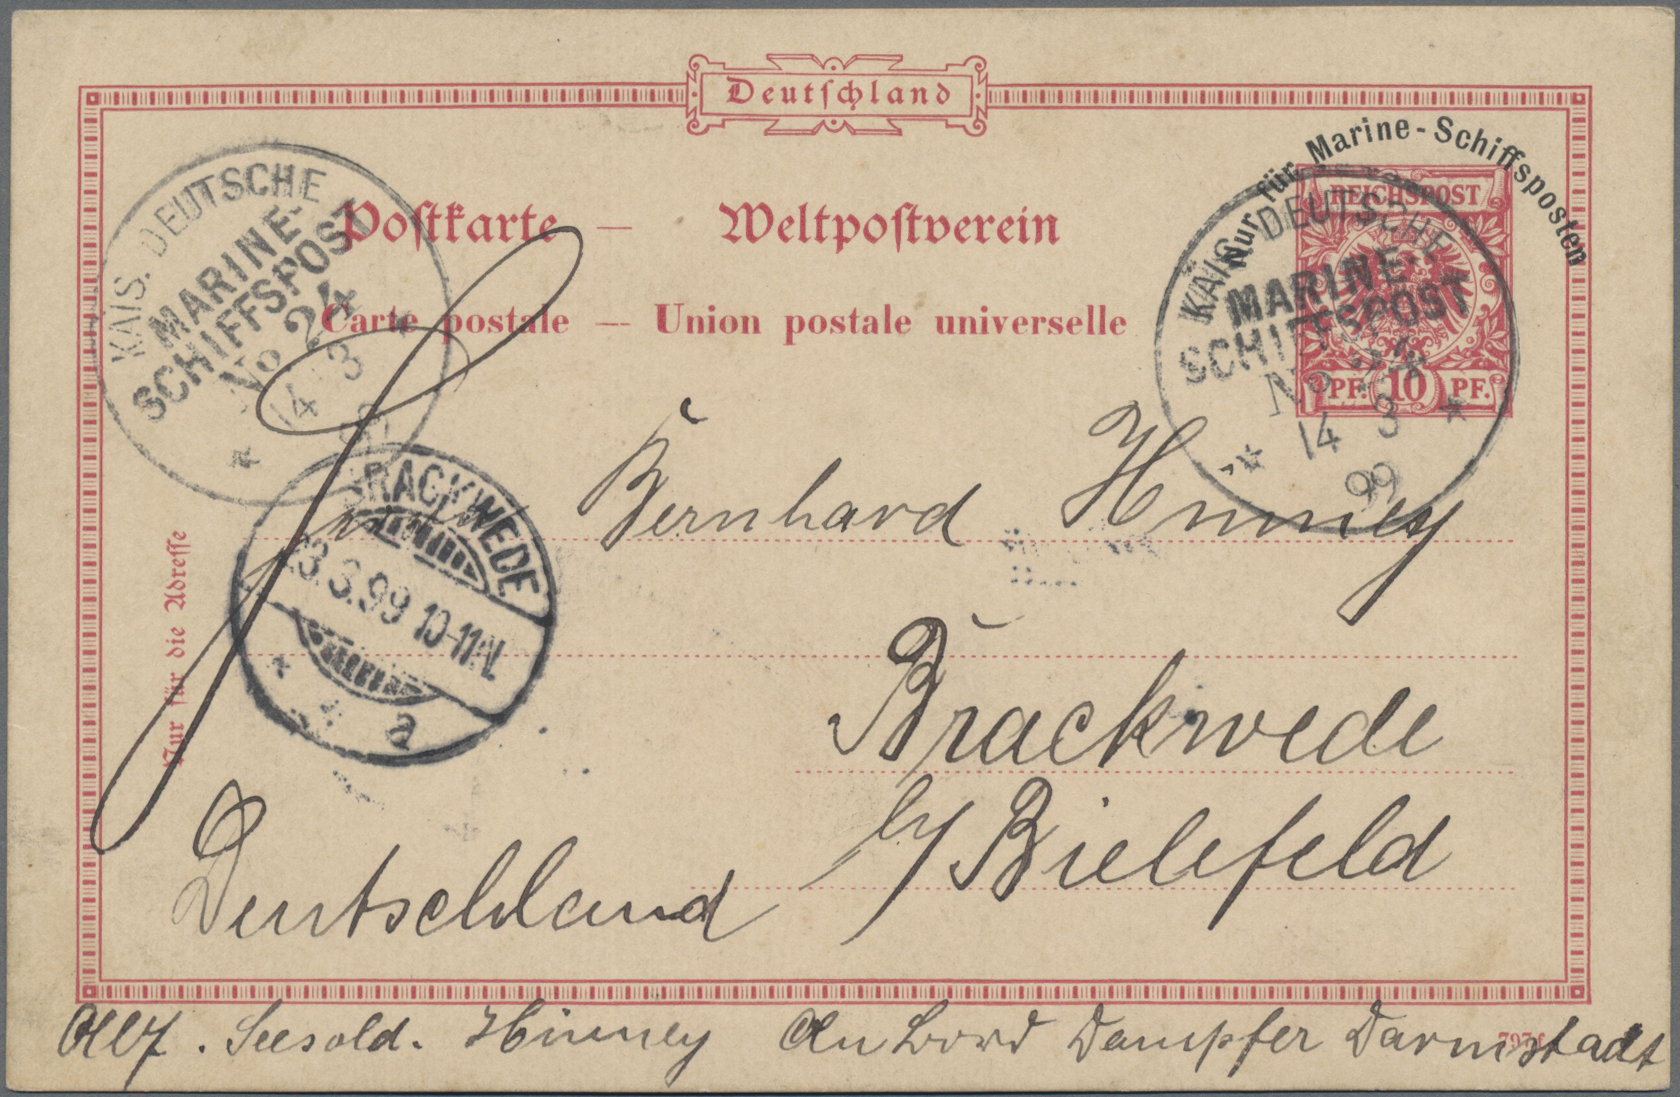 Deutschland
Nur für Marine-Schiffsposten
REICHSPOST
PF. 10 PF.
Postkarte — Weltpostverein
Carte postale — Union postale universelle
KAIS. DEUTSCHE
MARINE
SCHIFFSPOST
No 24
14 3
KAIS. DEUTSCHE
MARINE-
SCHIFFSPOST
No 24
14 3
99
BRACKWEDE
23.3.99 10-11N.
a
Nur für die Adresse
Bernhard Hinney
Brackwede
b/ Bielefeld
Deutschland
Abs. Seesold. Hinney An Bord Dampfer Darmstadt